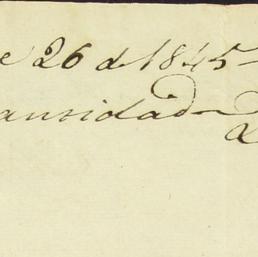 e 26 d. 1845
ansidad